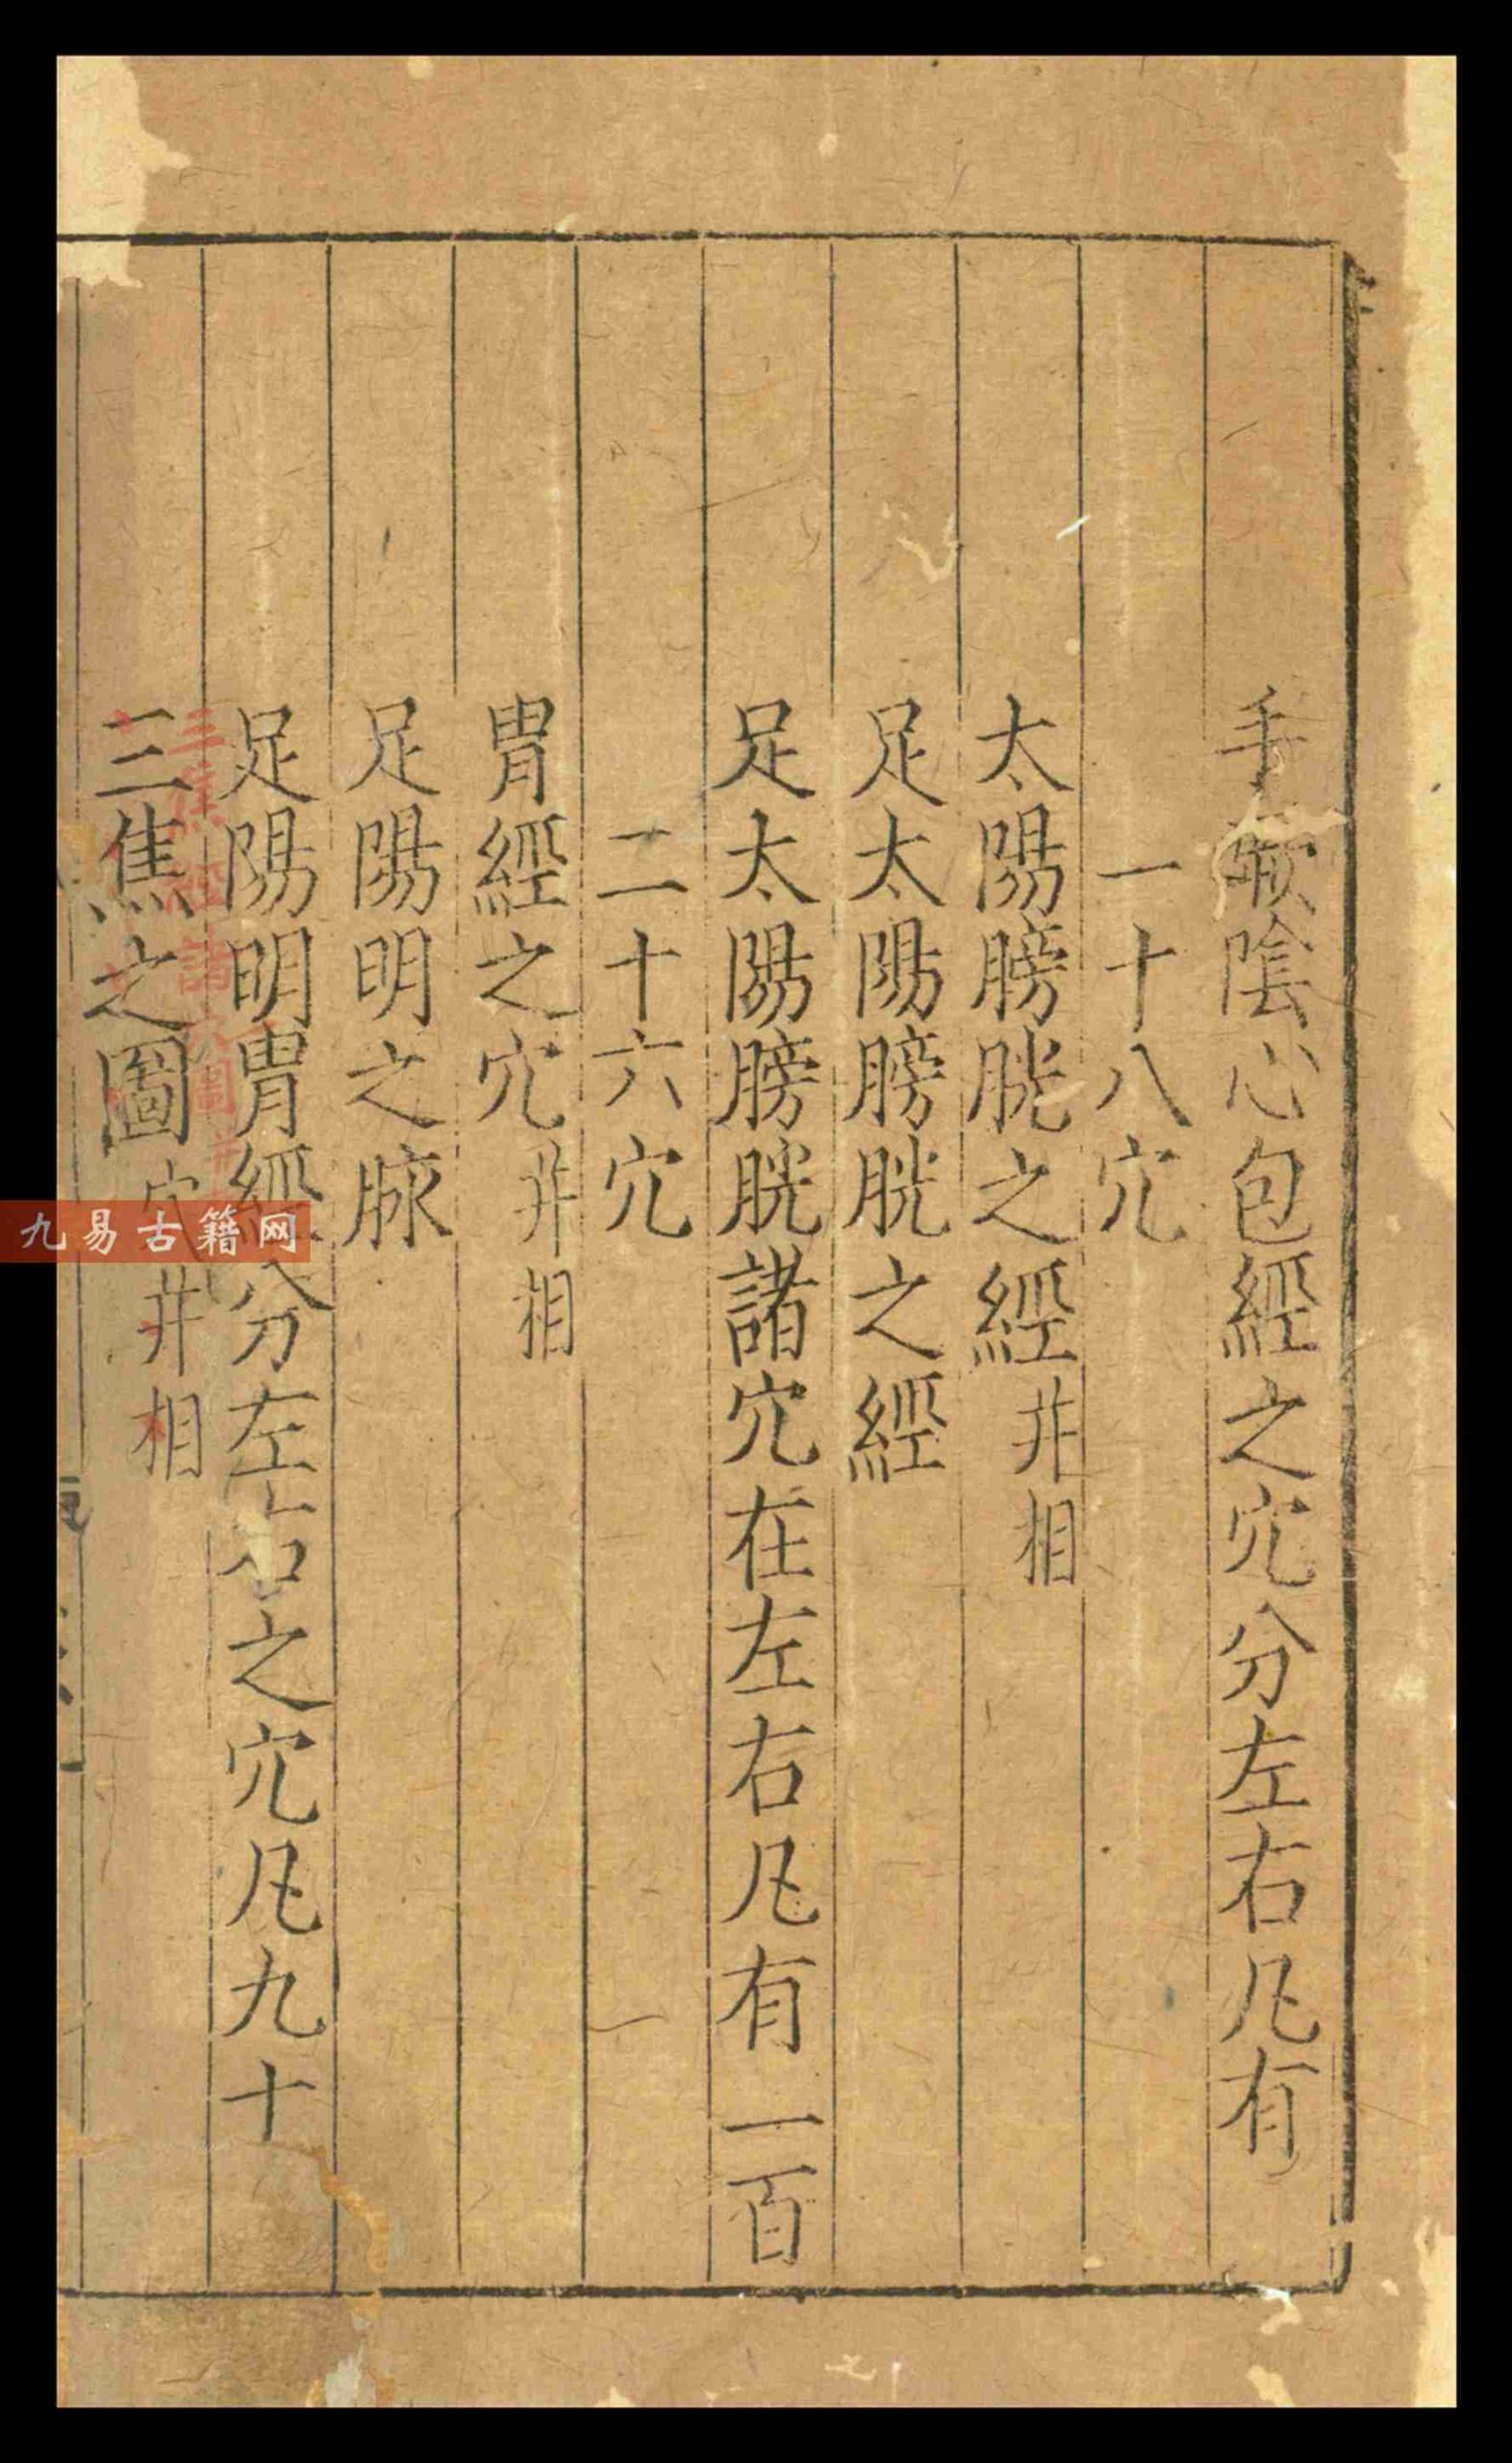 手厥陰心包經之穴分左右凡有
一十八穴
太陽膀胱之經并相
足太陽膀胱之經
足太陽膀胱諸穴在左右凡有一百
二十六穴
胃經之穴并相
足陽明之脉
足陽明胃經分左右之穴凡九十
三焦之圖穴并相
九易古籍网